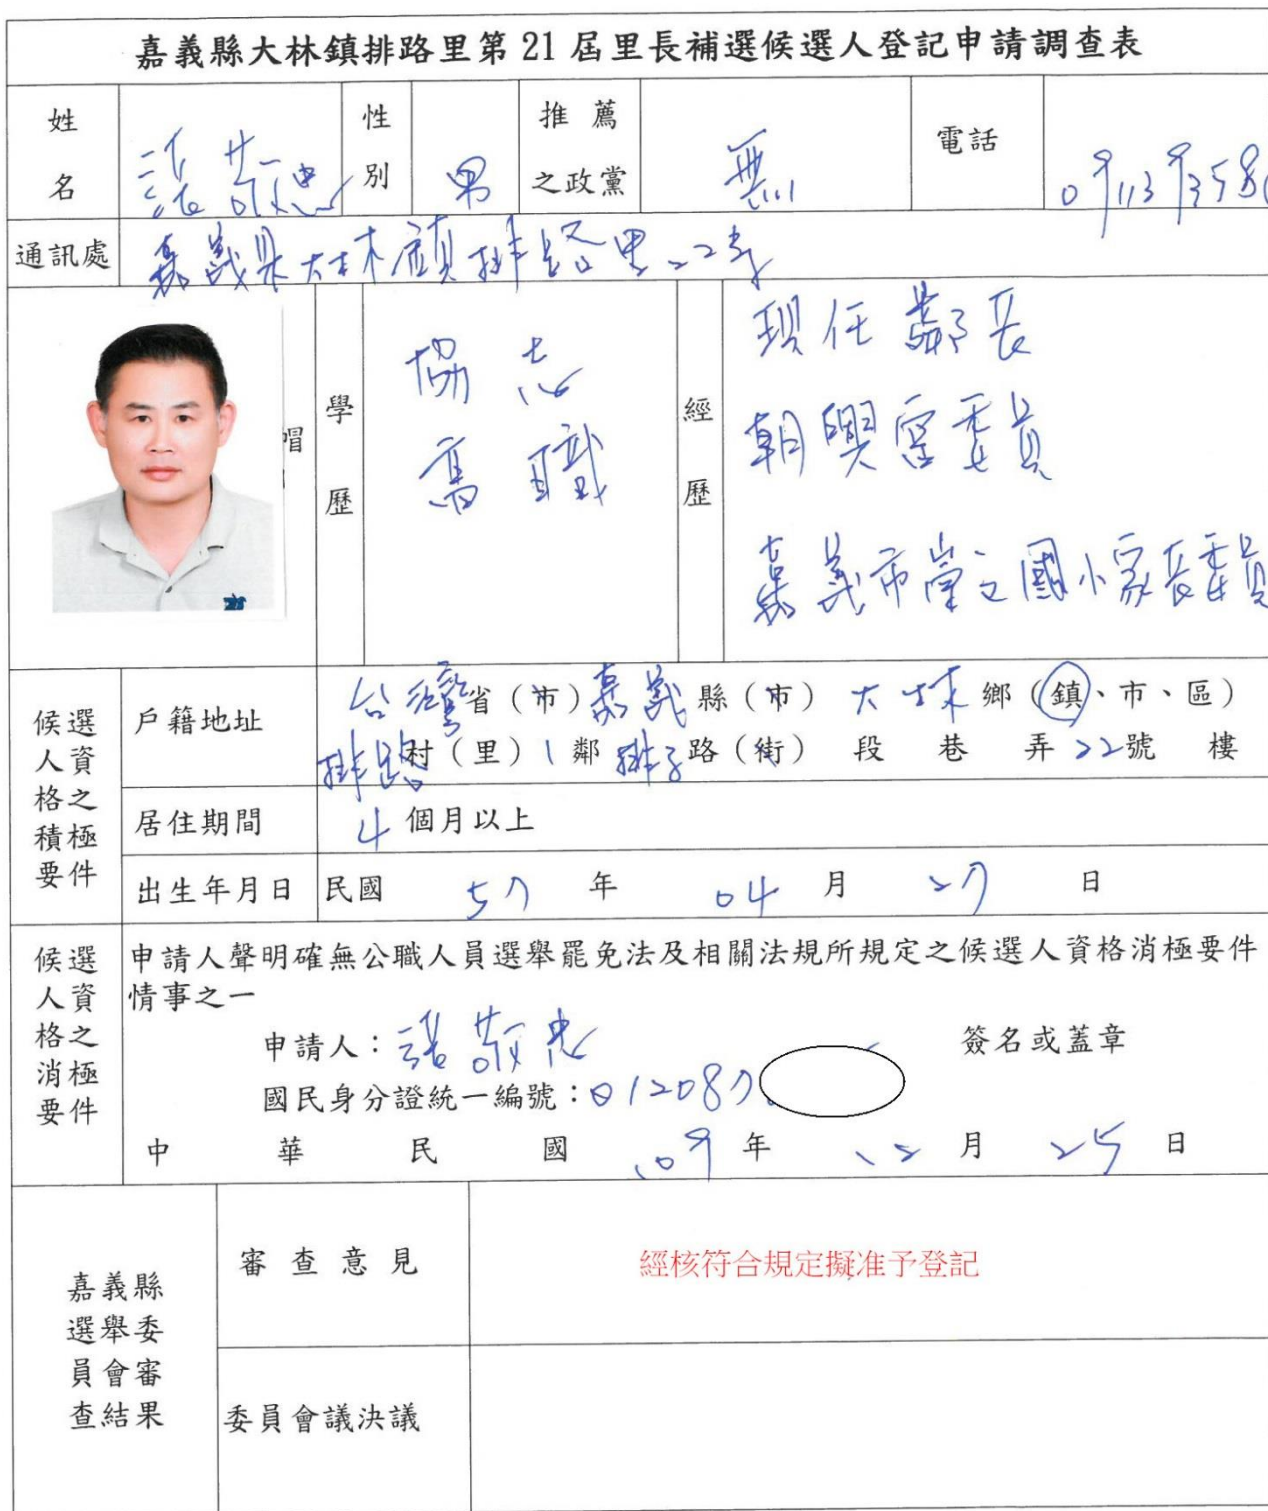 嘉義縣大林鎮排路里第21屆里長補選候選人登記申請調查表
姓名 敬忠 性別 男 推薦之政黨 無 電話
通訊處 嘉義縣大林鎮排路里22號
帽
學歷 協志高職
經歷 現任鄰長
朝興宮委員
嘉義市崇文國小家長委員
候選人資格之積極要件
戶籍地址 台灣省（市）嘉義縣（市）大林鄉（鎮、市、區）
排路村（里）1鄰 路（街） 段 巷 弄 22號 樓
居住期間 4個月以上
出生年月日 民國 57 年 04 月 27 日
候選人資格之消極要件
申請人聲明確無公職人員選舉罷免法及相關法規所規定之候選人資格消極要件
情事之一
申請人： 敬忠 簽名或蓋章
國民身分證統一編號：
中華民國 109 年 12 月 25 日
嘉義縣選舉委員會審查結果
審查意見 經核符合規定擬准予登記
委員會議決議